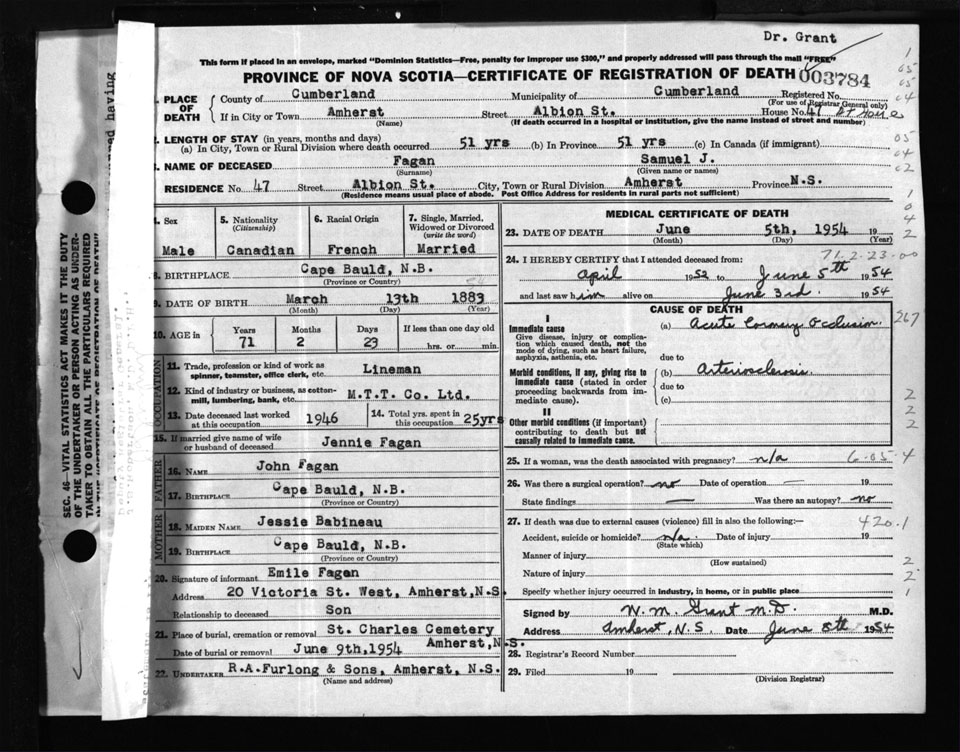 Dr. Grant
This form if placed in an envelope, marked "Dominion Statistics—Free, penalty for improper use $300," and properly addressed will pass through the mail "FREE"
PROVINCE OF NOVA SCOTIA—CERTIFICATE OF REGISTRATION OF DEATH 003784
1. PLACE OF DEATH
County of Cumberland Municipality of Cumberland Registered No.
(For use of Registrar General only)
If in City or Town Amherst Street Albion St. House No. 47 At Home
(Name) (If death occurred in a hospital or institution, give the name instead of street and number)
2. LENGTH OF STAY (in years, months and days)
(a) In City, Town or Rural Division where death occurred 51 yrs (b) In Province 51 yrs (c) In Canada (if immigrant)
3. NAME OF DECEASED Fagan Samuel J.
(Surname) (Given name or names)
RESIDENCE No. 47 Street Albion St. City, Town or Rural Division Amherst Province N.S.
(Residence means usual place of abode. Post Office Address for residents in rural parts not sufficient)
4. Sex
Male
5. Nationality
(Citizenship)
Canadian
6. Racial Origin
French
7. Single, Married, Widowed or Divorced
(write the word)
Married
8. BIRTHPLACE Cape Bauld, N.B.
(Province or Country)
9. DATE OF BIRTH March 13th 1883
(Month) (Day) (Year)
10. AGE in
Years Months Days If less than one day old
71 2 23 hrs. or min.
OCCUPATION
11. Trade, profession or kind of work as spinner, teamster, office clerk, etc. Lineman
12. Kind of industry or business, as cotton-mill, lumbering, bank, etc. M.T.T. Co. Ltd.
13. Date deceased last worked at this occupation 1946
14. Total yrs. spent in this occupation 25yrs
15. If married give name of wife or husband of deceased Jennie Fagan
FATHER
16. NAME John Fagan
17. BIRTHPLACE Cape Bauld, N.B.
(Province or Country)
MOTHER
18. MAIDEN NAME Jessie Babineau
19. BIRTHPLACE Cape Bauld, N.B.
(Province or Country)
20. Signature of informant Emile Fagan
Address 20 Victoria St. West, Amherst, N.S.
Relationship to deceased Son
21. Place of burial, cremation or removal St. Charles Cemetery
Amherst, N.S.
Date of burial or removal June 9th, 1954
22. UNDERTAKER R.A.Furlong & Sons, Amherst, N.S.
(Name and address)
MEDICAL CERTIFICATE OF DEATH
23. DATE OF DEATH June 5th, 1954 19
(Month) (Day) (Year)
71-2-23-00
24. I HEREBY CERTIFY that I attended deceased from:
April 1952 to June 5th 1954
and last saw him alive on June 3rd 1954
CAUSE OF DEATH
I
Immediate cause
Give disease, injury or complication which caused death, not the mode of dying, such as heart failure, asphyxia, asthenia, etc.
(a) Acute Coronary Occlusion 267
due to
Morbid conditions, if any, giving rise to immediate cause (stated in order proceeding backwards from immediate cause).
(b) Arteriosclerosis
due to
(c)
II
Other morbid conditions (if important) contributing to death but not causally related to immediate cause.
25. If a woman, was the death associated with pregnancy? n/a 6-05-4
26. Was there a surgical operation? no Date of operation — 19
State findings — Was there an autopsy? no
27. If death was due to external causes (violence) fill in also the following:— 420.1
Accident, suicide or homicide? n/a Date of injury 19
(State which)
Manner of injury
(How sustained)
Nature of injury
Specify whether injury occurred in industry, in home, or in public place
Signed by W. M. Grant M.D. M.D.
Address Amherst, N.S. Date June 8th 1954
28. Registrar's Record Number
29. Filed 19
(Division Registrar)
SEC. 46—VITAL STATISTICS ACT MAKES IT THE DUTY
OF THE UNDERTAKER OR PERSON ACTING AS UNDER-
TAKER TO OBTAIN ALL THE PARTICULARS REQUIRED
having